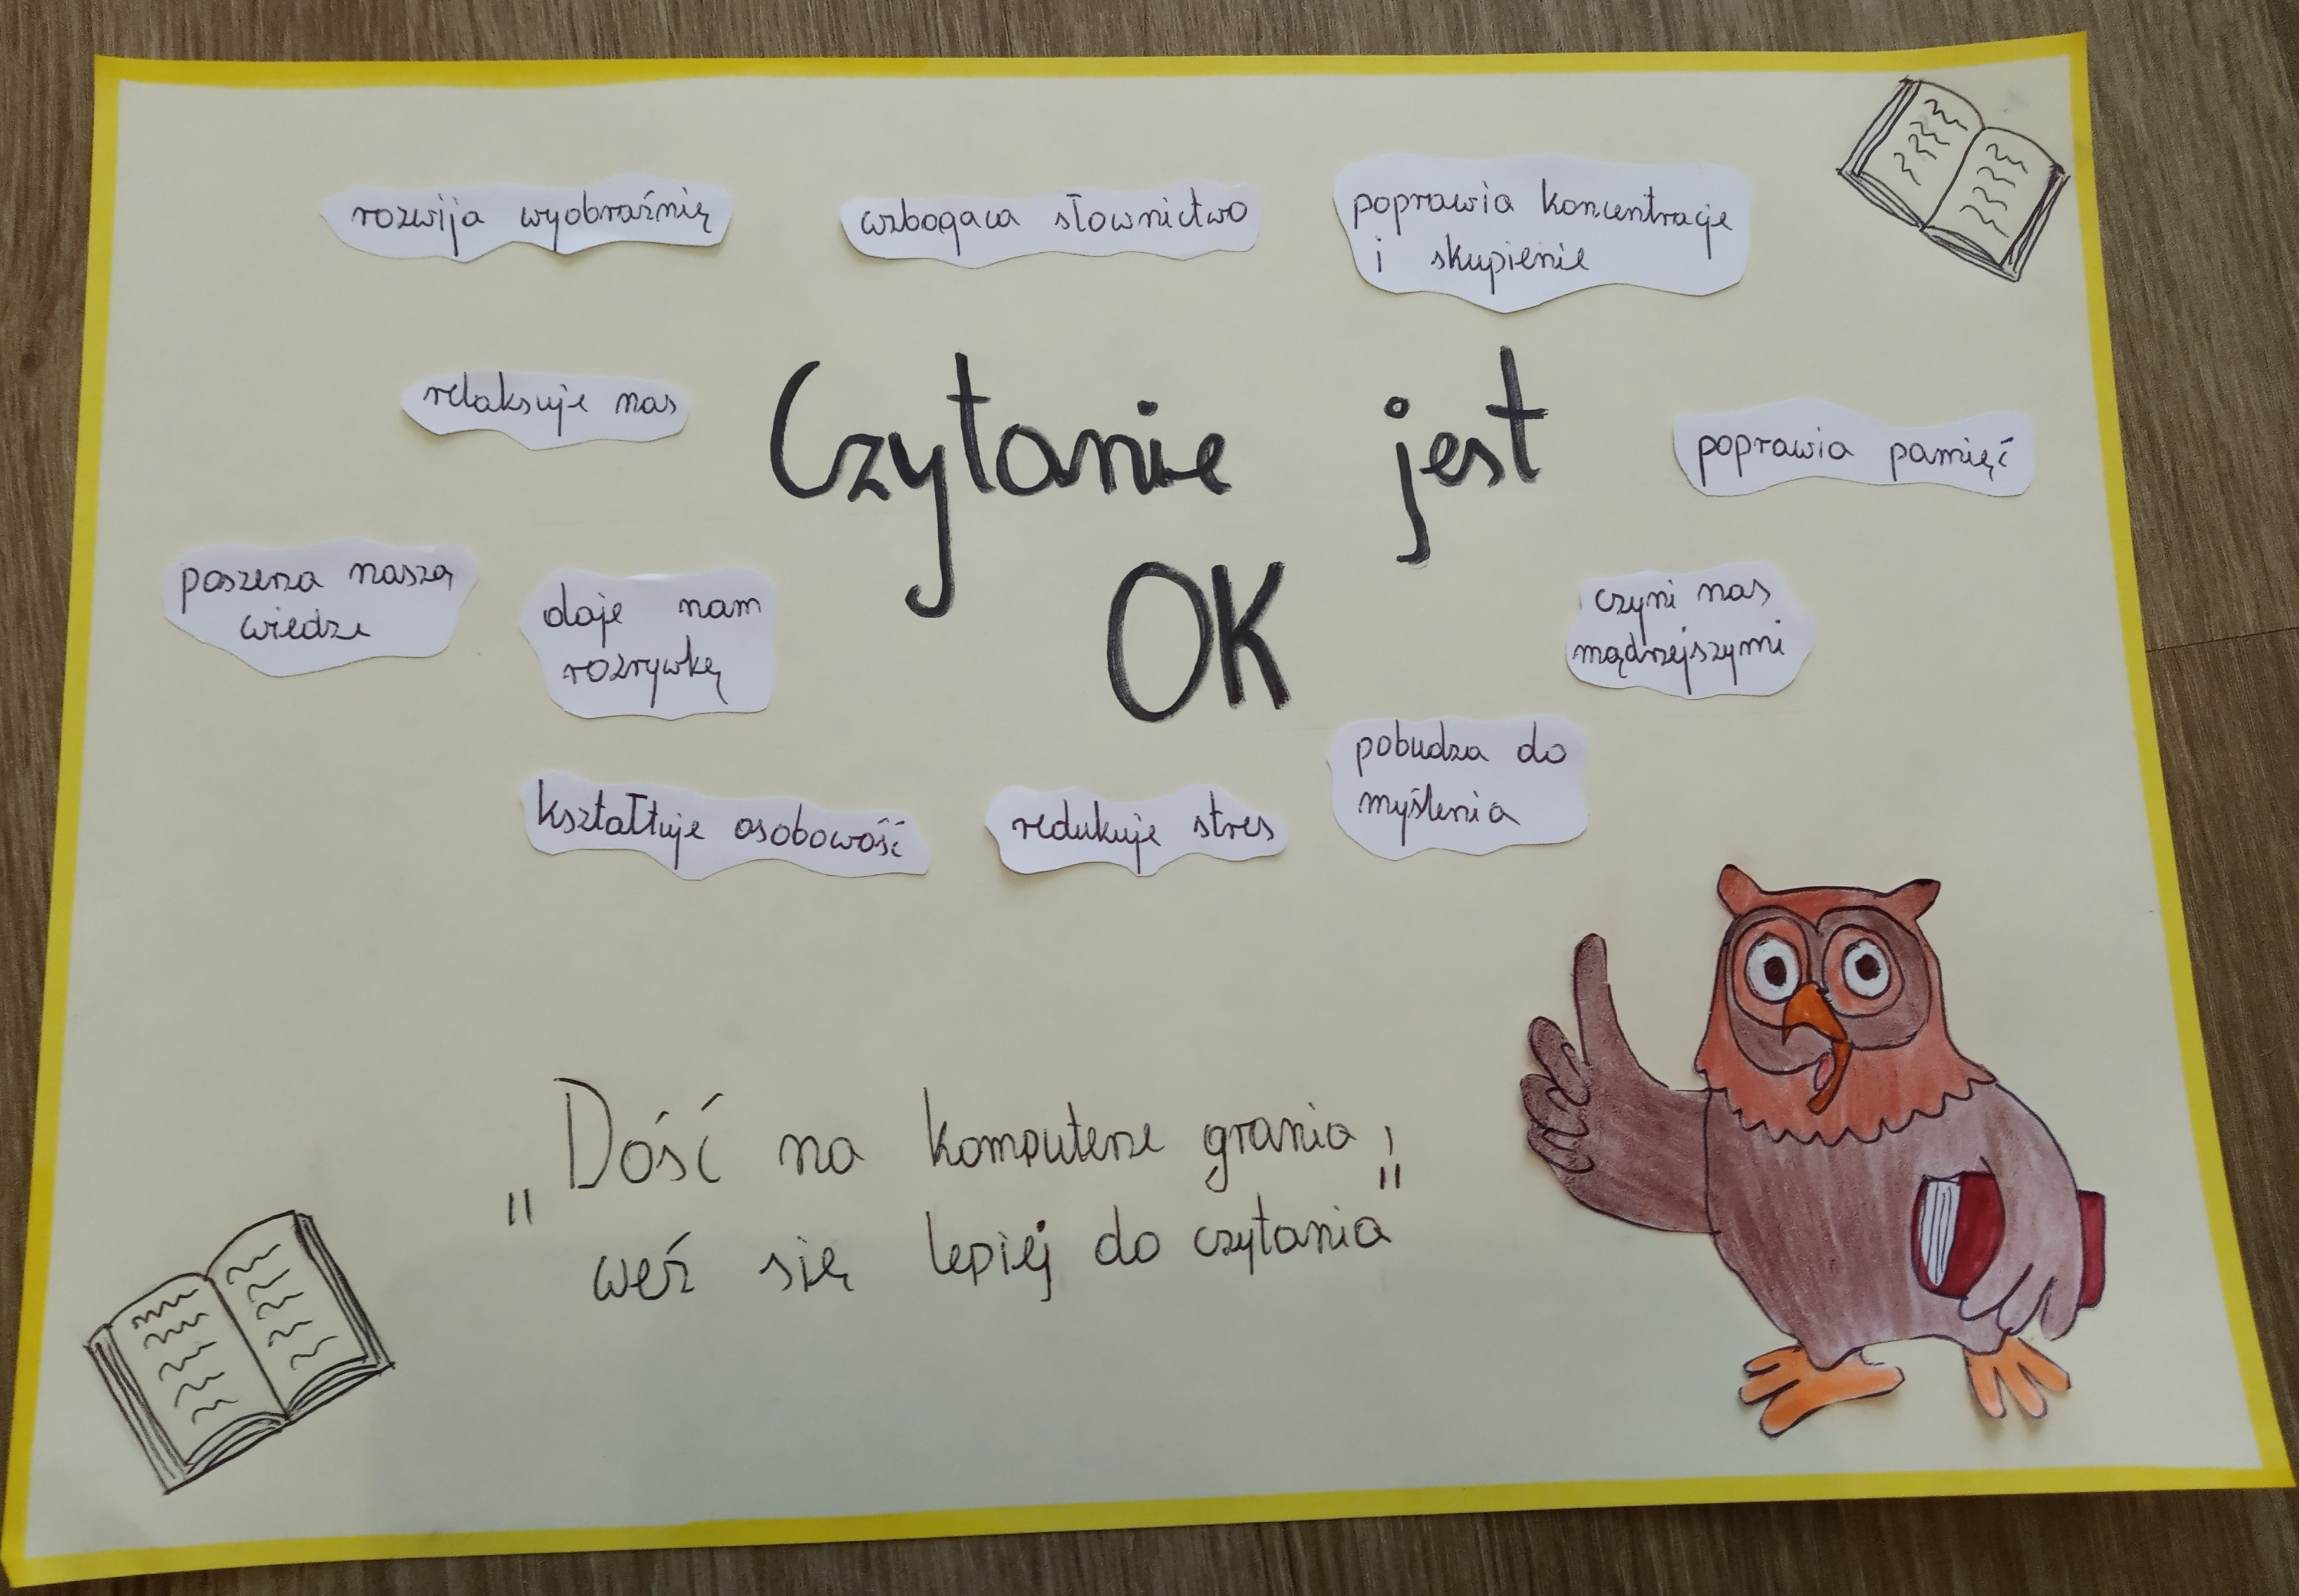 rozwija wyobraźnię
wzbogaca słownictwo
poprawia koncentracje
i skupienie
relaksuje nas
Czytanie jest
OK
poprawia pamięć
poszerza naszą
wiedze
daje nam
rozrywkę
czyni nas
mądrzejszymi
kształtuje osobowość
redukuje stres
pobudza do
myślenia
„Dość na komputerze grania,
weź się lepiej do czytania"